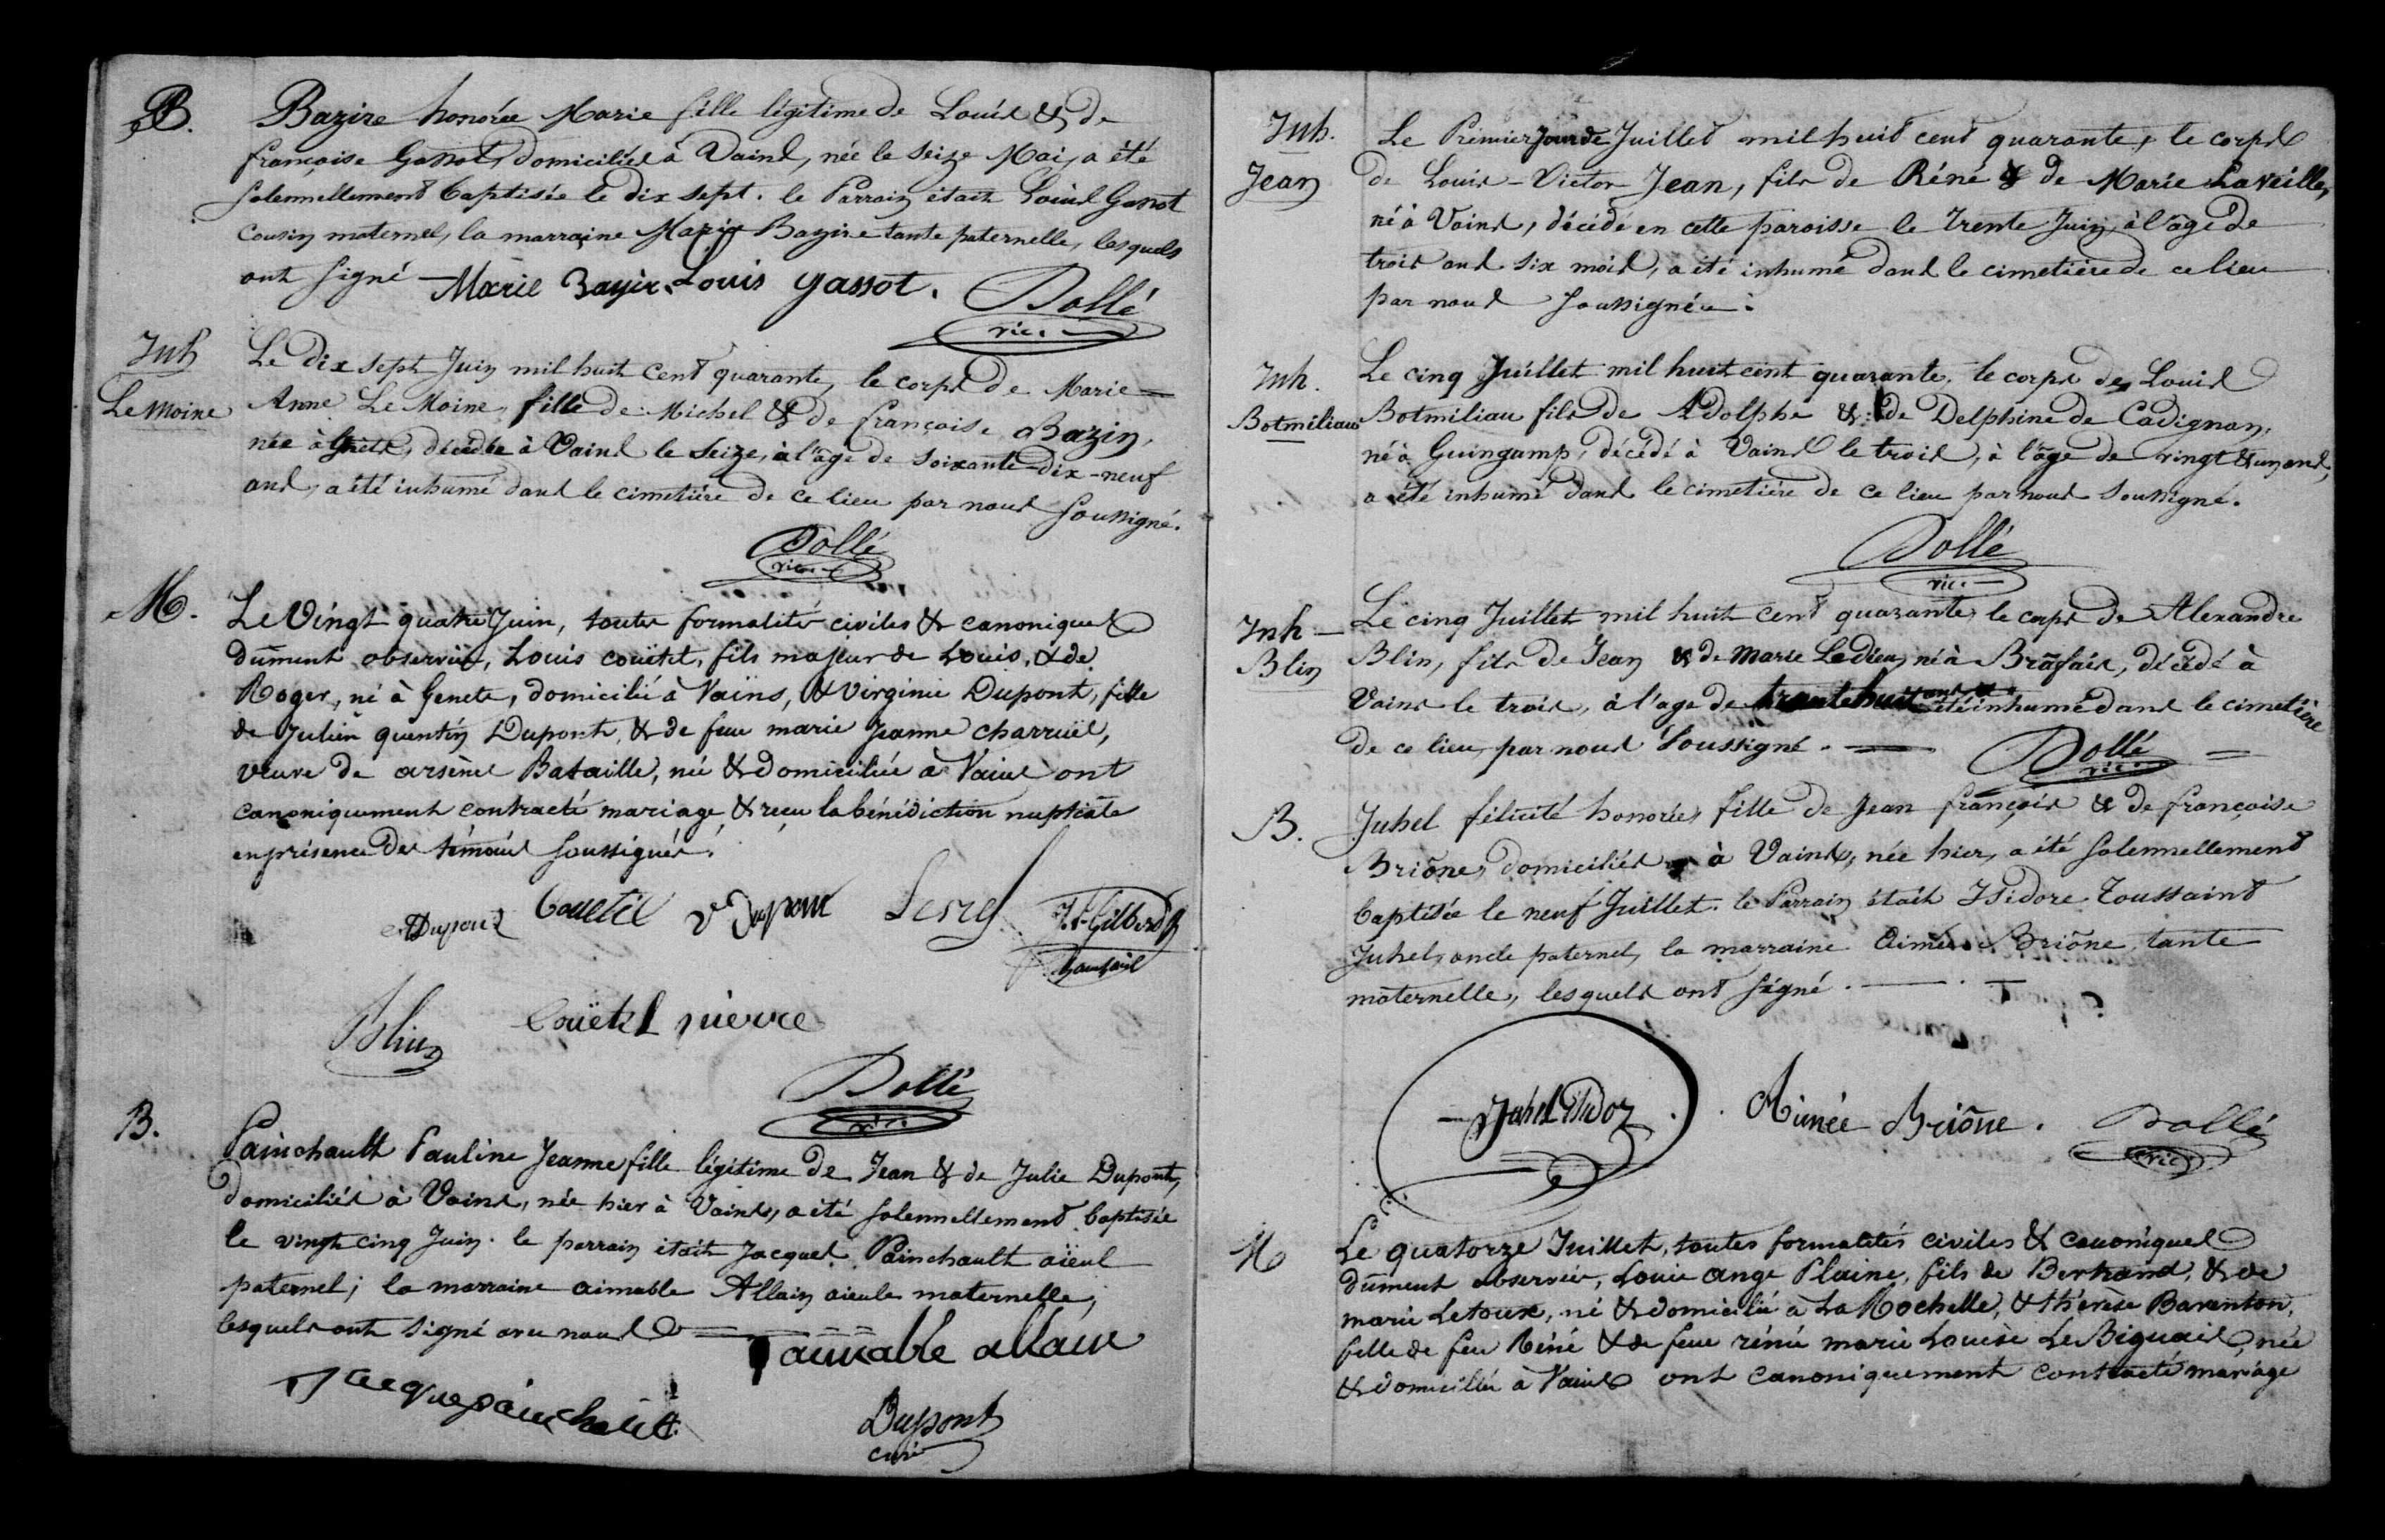 B.
Bazire honorée Marie fille légitime de Louis & de
françoise Gassot, domiciliés à Vains, née le seize Mai, a été
solennellement baptisée le dix sept. le Parrain était Louis Gassot
cousin maternel, la marraine Marie Bazire tante paternelle, lesquels
ont signé
Marie Bazire Louis gassot.
Dollé
vic.
Inh
Le Moine
Le dix sept Juin mil huit cent quarante, le corps de Marie
Anne Le Moine, fille de Michel & de françoise Bazin,
née à décédée à Vains le seize, à l'âge de soixante-dix-neuf
ans, a été inhumé dans le cimetière de ce lieu par nous soussigné.
Dollé
vic.
M.
Le Vingt quatre Juin, toutes formalités civiles & canoniques
dûment observées, Louis couëtil, fils majeur de Louis, & de
Roger, né à Genets, domicilié à Vains, & Virginie Dupont, fille
de Julien quentin Dupont, & de feue marie Jeanne charruël,
veuve de arsène Bataille, née & domiciliée à Vains ont
canoniquement contracté mariage & reçu la bénédiction nuptiale
en présence des témoins soussignés.
Dupont Couetil v Dupont J. F. Gilbert
Blin Couëtil pierre
Dollé
vic.
B.
Painchault Pauline Jeanne fille légitime de Jean & de Julie Dupont,
domiciliés à Vains, née hier à Vains, a été solennellement baptisée
le vingt cinq Juin. le parrain était Jacques Painchault aïeul
paternel; la marraine aimable Allain aieule maternelle,
lesquels ont signé avec nous
aimable allain
Jacque painchault
Dupont
curé
Inh.
Jean
Le Premier jour de Juillet mil huit cent quarante, le corps
de Louis-Victor Jean, fils de Réné & de Marie Laveille,
né à Vains, décédé en cette paroisse le trente Juin, à l'âge de
trois ans six mois, a été inhumé dans le cimetière de ce lieu
par nous soussigné.
Inh.
Botmiliau
Le cinq Juillet mil huit cent quarante, le corps de Louis
Botmiliau fils de Adolphe & de Delphine de Cadignan,
né à Guingamp, décédé à Vains le trois, à l'âge de vingt & un ans,
a été inhumé dans le cimetière de ce lieu par nous soussigné.
Dollé
vic.
Inh
Blin
Le cinq Juillet mil huit cent quarante le corps de Alexandre
Blin, fils de Jean & de Marie Ledieu, né à Brafais, décédé à
Vains le trois, à l'age de trente huit ans a été inhumé dans le cimetière
de ce lieu, par nous soussigné.
Dollé
vic.
B.
Juhel félicité honorée, fille de Jean françois & de françoise
Briône, domiciliés à Vains, née hier, a été solennellement
baptisée le neuf Juillet. le Parrain était Isidore Toussaint
Juhel, oncle paternel, la marraine Aimée Briône, tante
maternelle, lesquels ont signé.
Juhel Isidor Aimée Briône. Dollé
vic.
M
Le quatorze Juillet, toutes formalités civiles & canoniques
dûment observées, Louis ange Plaine, fils de Bertrand, & de
marie Letoux, né & domicilié à La Rochelle, & thérèse Baventon,
fille de feu Réné & de feue réné marie Louise Le Biguais, née
& domiciliée à Vains ont canoniquement contracté mariage